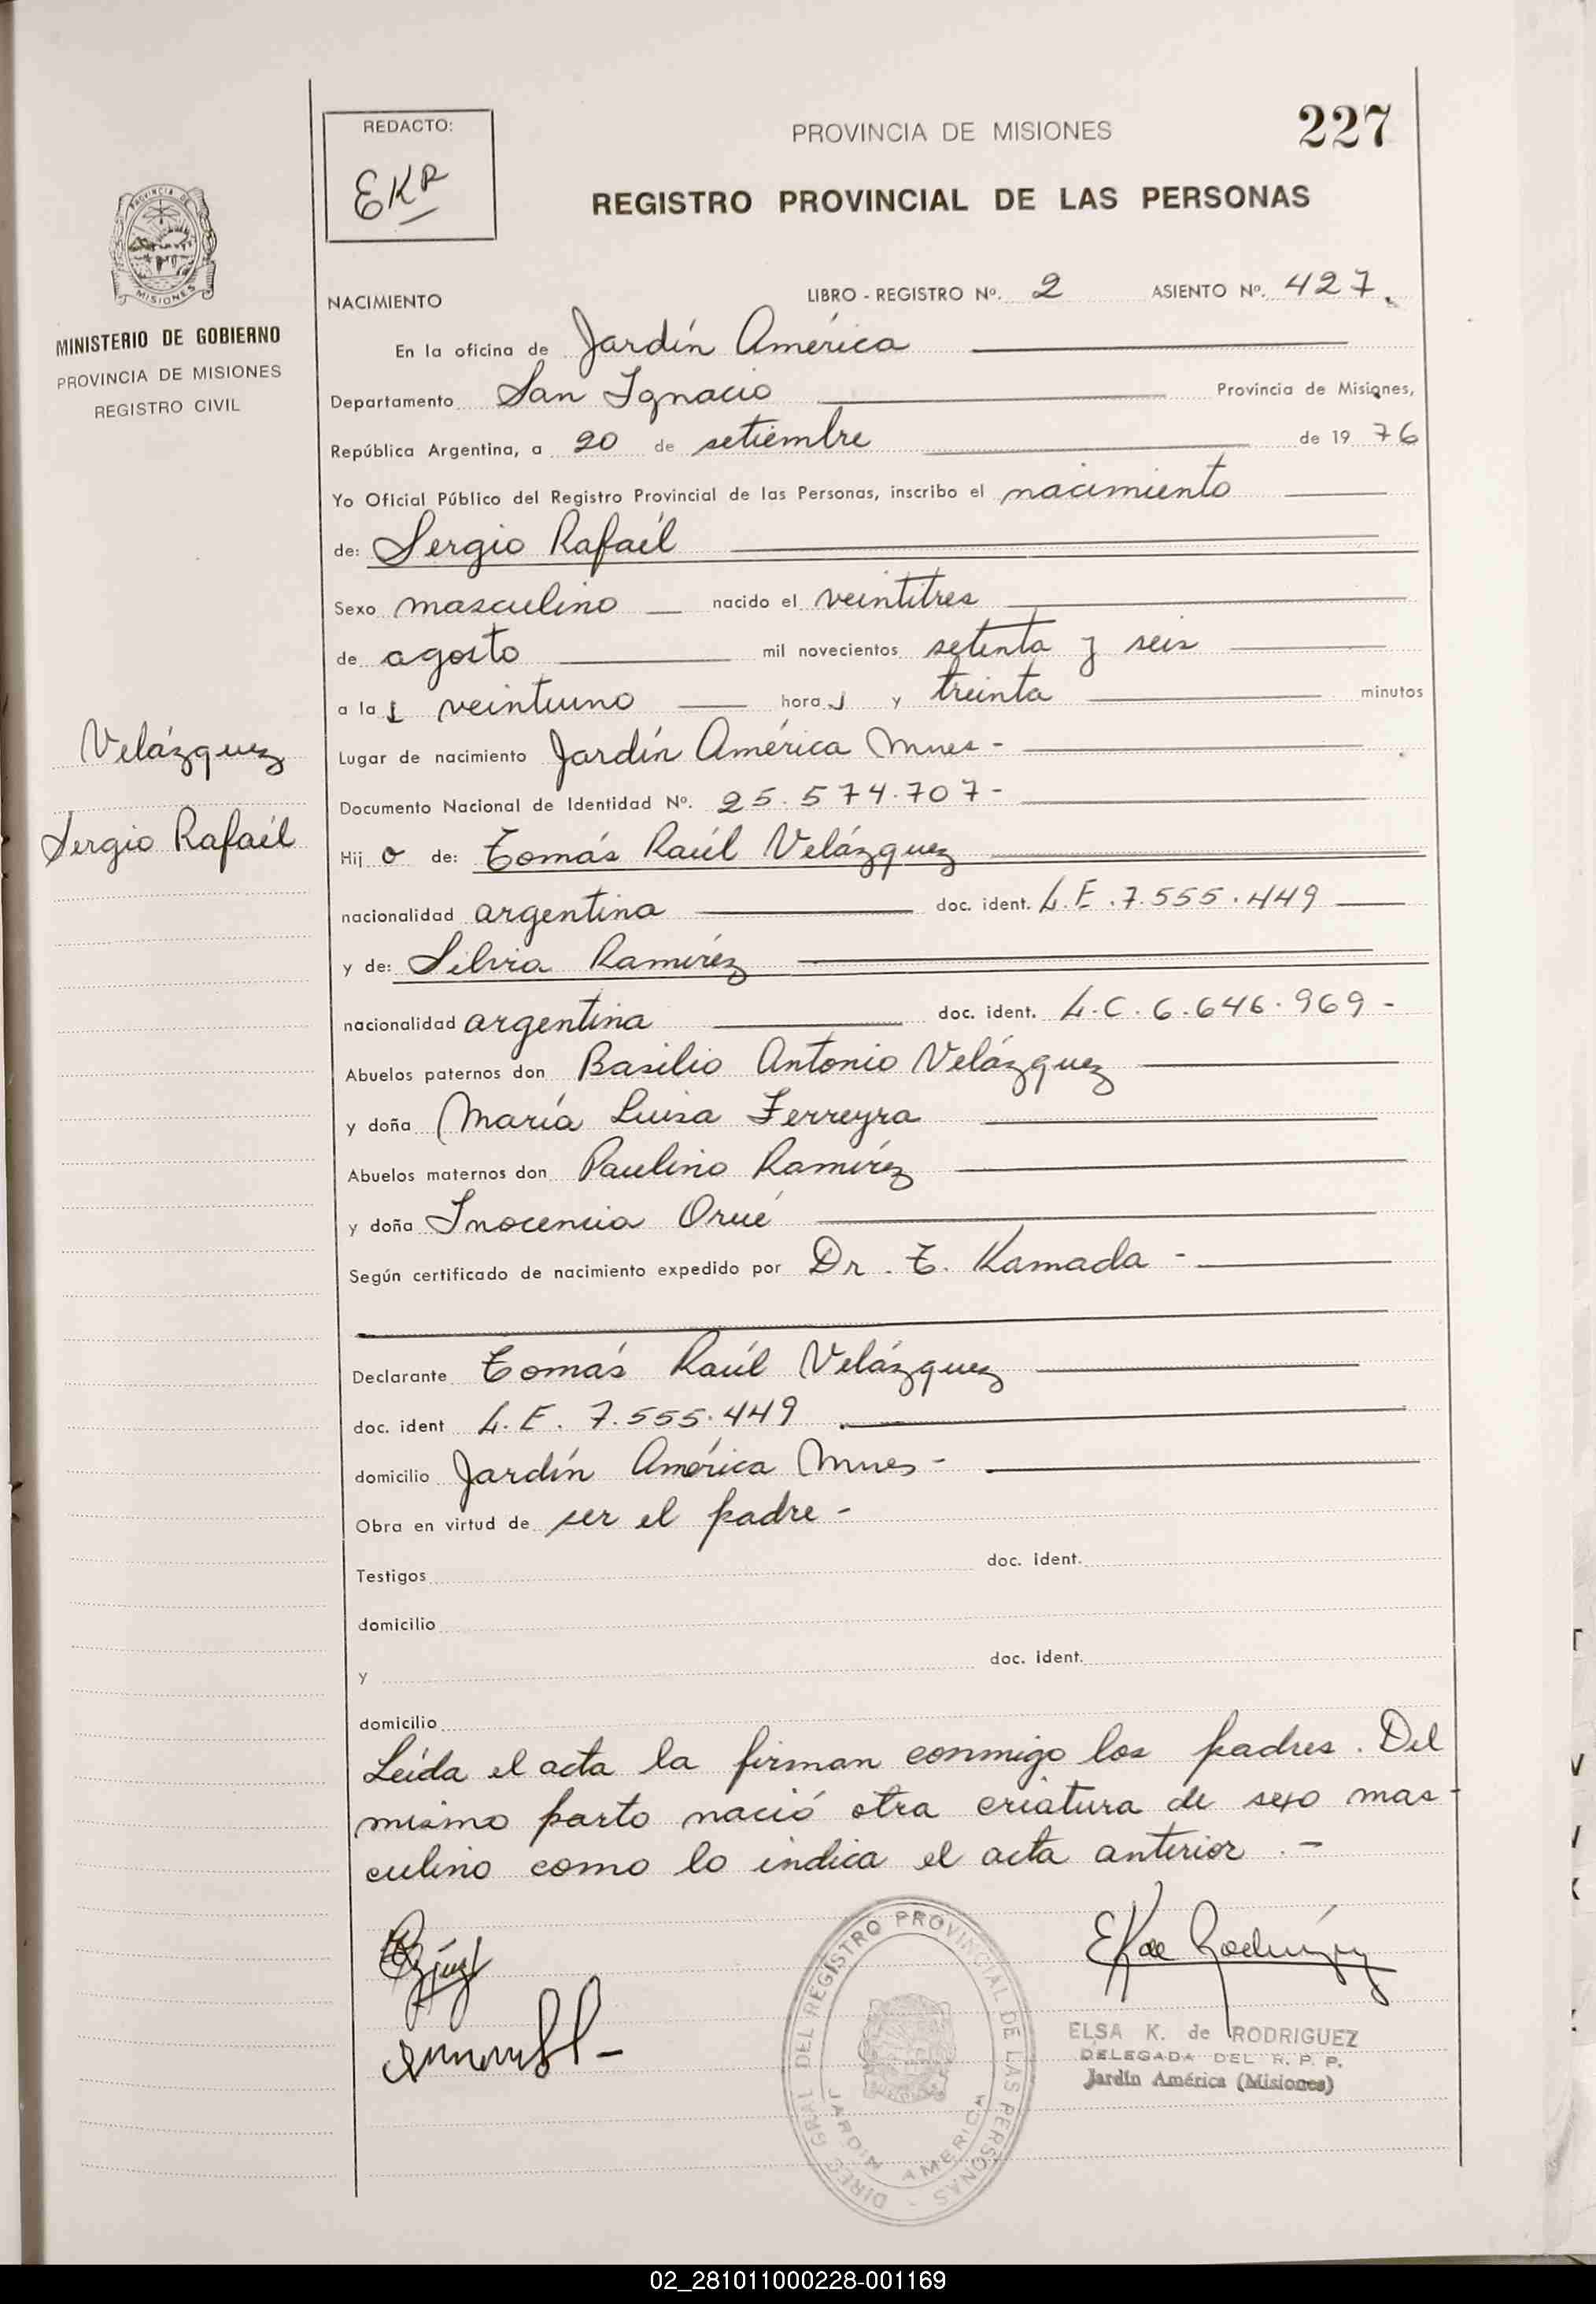 REDACTO:
EKR
PROVINCIA DE MISIONES
227
REGISTRO PROVINCIAL DE LAS PERSONAS
PROVINCIA DE
MISIONES
MINISTERIO DE GOBIERNO
PROVINCIA DE MISIONES
REGISTRO CIVIL
NACIMIENTO LIBRO - REGISTRO Nº. 2 ASIENTO Nº. 427.
En la oficina de Jardín América
Departamento San Ignacio Provincia de Misiones,
República Argentina, a 20 de setiembre de 19 76
Yo Oficial Público del Registro Provincial de las Personas, inscribo el nacimiento
de: Sergio Rafaél
Sexo masculino nacido el veintitres
de agosto mil novecientos setenta y seis
a la s veintiuno hora s y treinta minutos
Velázquez
Lugar de nacimiento Jardín América Mnes-
Documento Nacional de Identidad Nº. 25.574.707-
Sergio Rafaél
Hij o de: Tomás Raúl Velázquez
nacionalidad argentina doc. ident. L.E.7.555.449
y de: Silvia Ramírez
nacionalidad argentina doc. ident. L.C.6.646.969-
Abuelos paternos don Basilio Antonio Velázquez
y doña María Luisa Ferreyra
Abuelos maternos don Paulino Ramírez
y doña Inocencia Orué
Según certificado de nacimiento expedido por Dr. T. Kamada-
Declarante Tomás Raúl Velázquez
doc. ident L.E. 7.555.449
domicilio Jardín América Mnes-
Obra en virtud de ser el padre-
Testigos doc. ident.
domicilio
y doc. ident.
domicilio
Leída el acta la firman conmigo los padres. Del
mismo parto nació otra criatura de sexo mas-
culino como lo indica el acta anterior.-
EK de Rodríguez
DIREC. GRAL. DEL REGISTRO PROVINCIAL DE LAS PERSONAS -
JARDIN AMERICA
ELSA K. de RODRIGUEZ
DELEGADA DEL R. P. P.
Jardín América (Misiones)
02_281011000228-001169